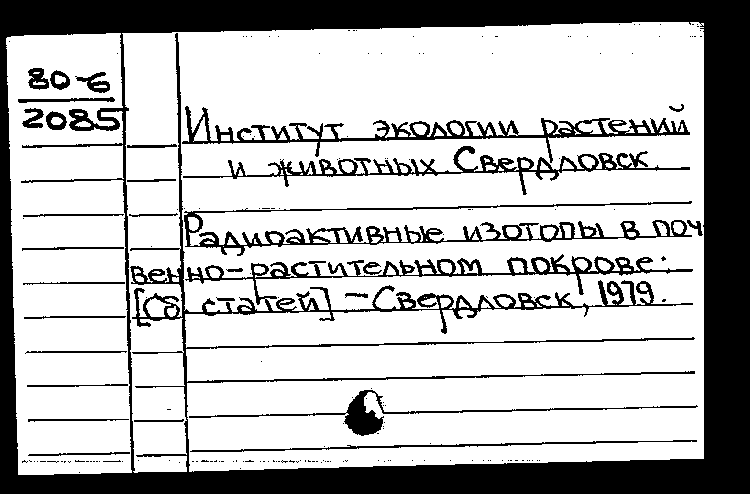 80-6
2085
Институт экологии растений
и животных. Свердловск.
Радиоактивные изотопы в поч
венно-растительном покрове:
[Сб. статей] - Свердловск, 1979.